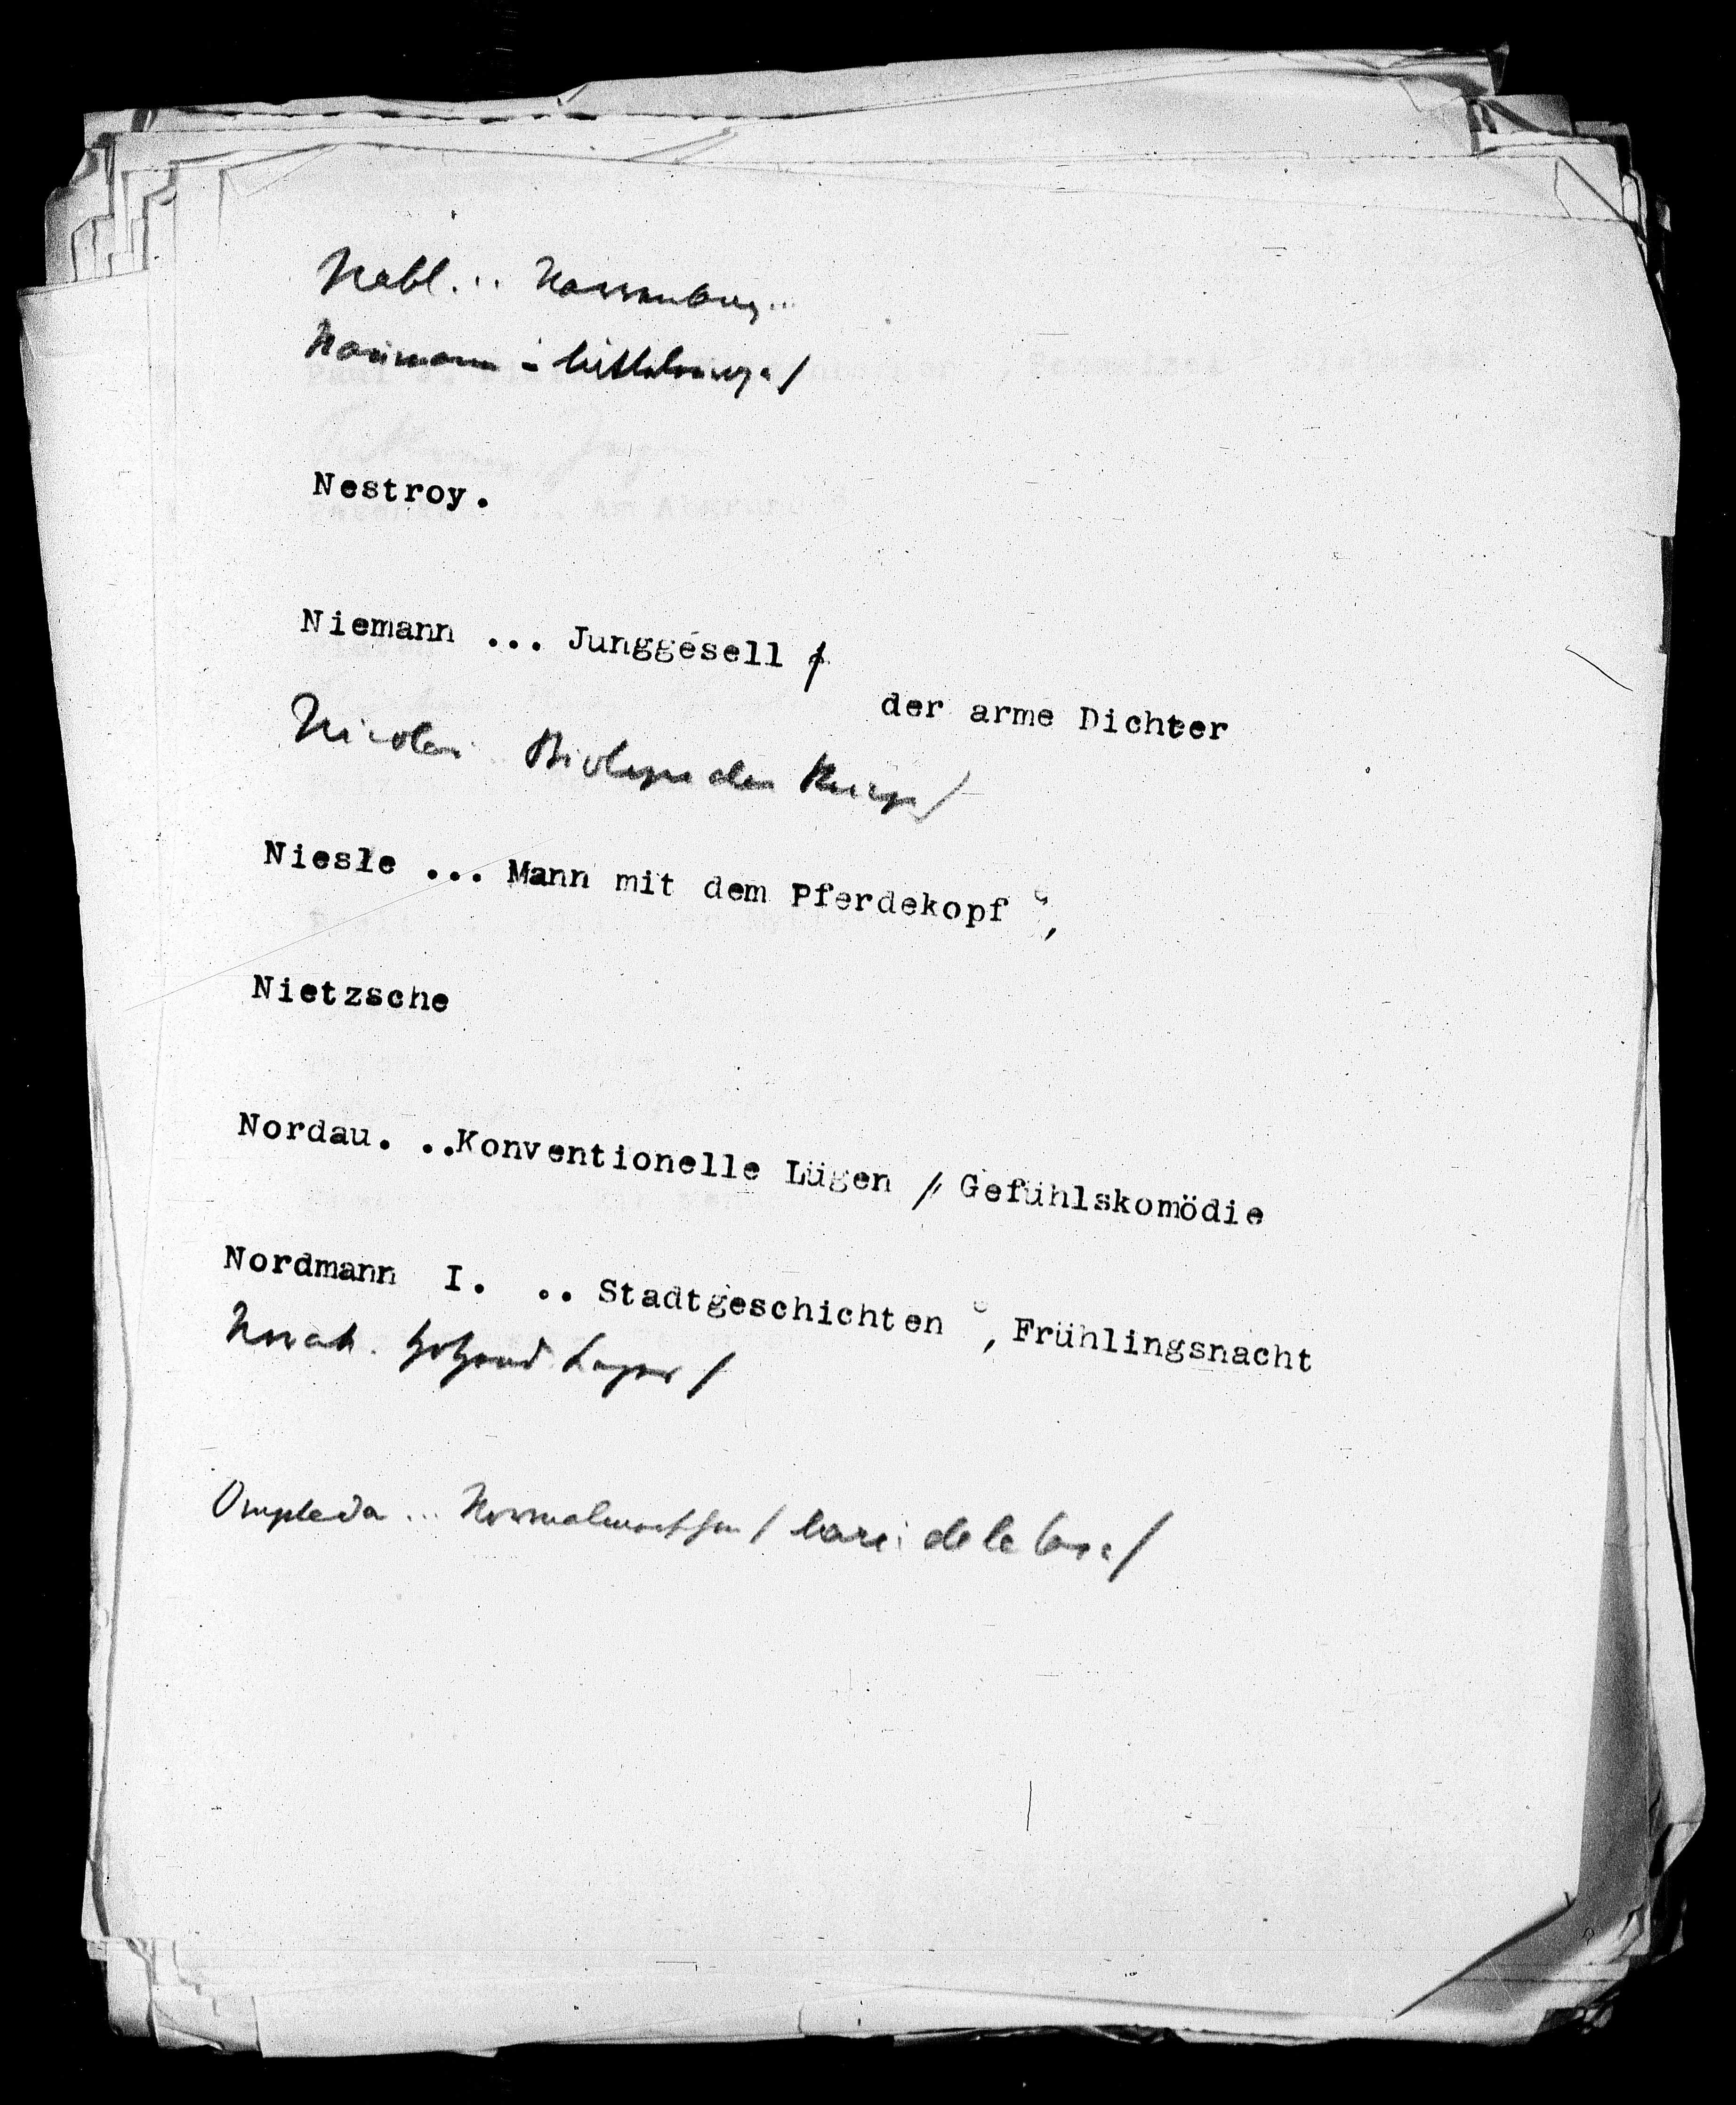 Nabl... Narrenbaum...
Naumann - Mitteleuropa /
Nestroy.
Niemann ... Junggesell /
der arme Dichter
Nicolai .. Biologie des Krieges /
Niesle ... Mann mit dem Pferdekopf ,
Nietzsche
Nordau. ..Konventionelle Lügen / Gefühlskomödie
Nordmann I. .. Stadtgeschichten , Frühlingsnacht
Novak. Lager /
Ompteda ... Normalmenschen / Maria de Caza /